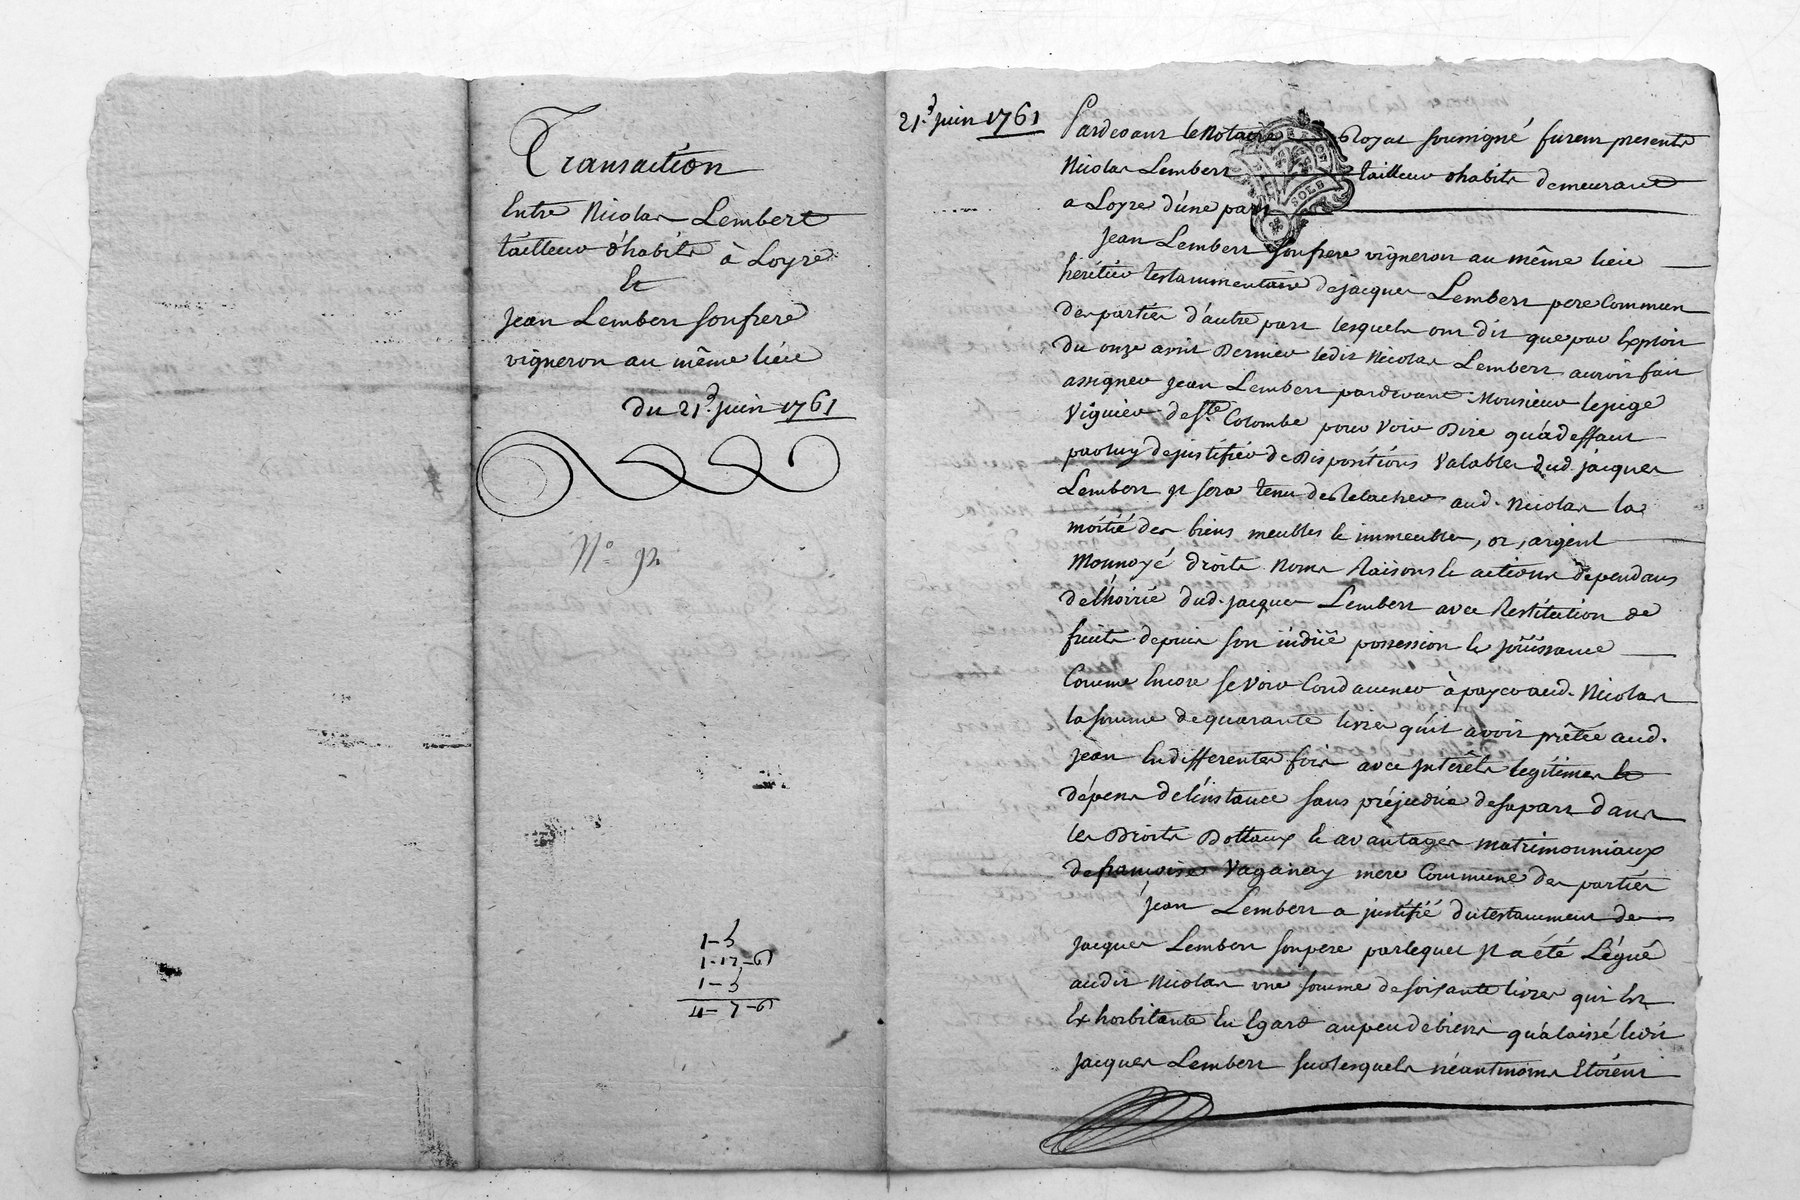 Transaction
Entre Nicolas Lembert
tailleur d'habits à Loyre
Et
Jean Lembert son frere
vigneron au même lieu
du 21.e juin 1761
N.o 92.
1-5
1-17-6
1-5
4-7-6
21.e juin 1761
Pardevant le Notaire Royal soussigné furent presents
Nicolas Lembert tailleur d'habits demeurant
a Loyre d'une part
SOLS
Jean Lembert son frere vigneron au même lieu
héritier testamentaire de jacques Lembert pere Commun
des parties d'autre part lesquels ont dit que par Exploit
du onze avril Dernier ledit Nicolas Lembert auroit fait
assigner jean Lembert pardevant Monsieur lejuge
Viguier de Ste Colombe pour voir Dire qu'à deffaut
par luy de justifier de Dispositions Valables dud. jacques
Lembert jl sera tenu de Relacher aud. Nicolas la
moitié des biens meubles & immeubles, or, argent
Monnoyé droits Noms Raisons & actions dependans
de l'hoirie dud. jacques Lembert avec Restitution de
fruits depuis son indüe possession & joüissance
Comme Encore se voir Condamner à payer aud. Nicolas
la somme de quarante livres qu'il avoit prêtée aud.
jean En differentes fois avec jnterêts legitimes &
dépens de l'instance sans préjudice de sa part dans
les Droits Dottaux & avantages matrimonniaux
de françoise Vaganay mere Commune des parties
jean Lembert a justifié du testament de
jacques Lembert son pere par lequel jl a été Légué
audit Nicolas une somme de soixante livres qui Est
Exhorbitante En Egard au peu de biens qu'a laissé ledit
jacques Lembert sur lesquels néantmoins Etoient